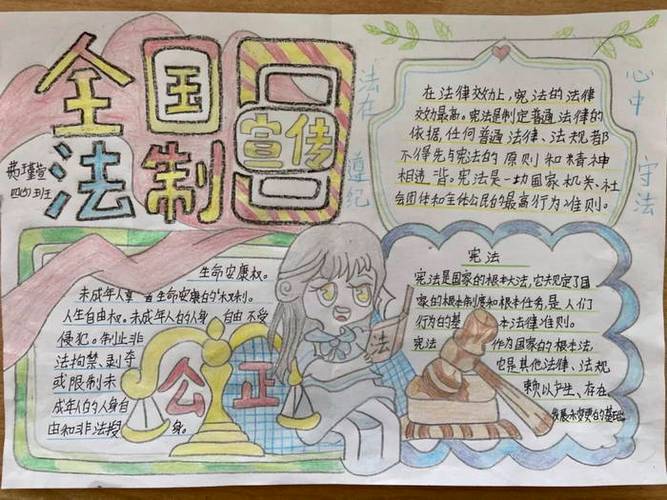 全国
法制
宣传
日
四(5)班
法在
心中
遵纪
守法
在法律效力上,宪法的法律
效力最高。宪法是制定普通法律的
依据,任何普通法律、法规都
不得先与宪法的原则和精神
相违背。宪法是一切国家机关、社
会团体和全体公民的最高行为准则。
生命安康权。
未成年人享 着生命安康的权利。
人生自由权。未成年人的人身 自由不受
侵犯。制止非
法拘禁、剥夺
或限制未
成年人的人身自
由和非法搜 身。
公正
法
宪法
宪法是国家的根本大法,它规定了国
家的根本制度和根本任务,是人们
行为的基 本法律准则。
宪法 作为国家的根本法,
它是其他法律、法规
赖以产生、存在、
发展和变更的基础